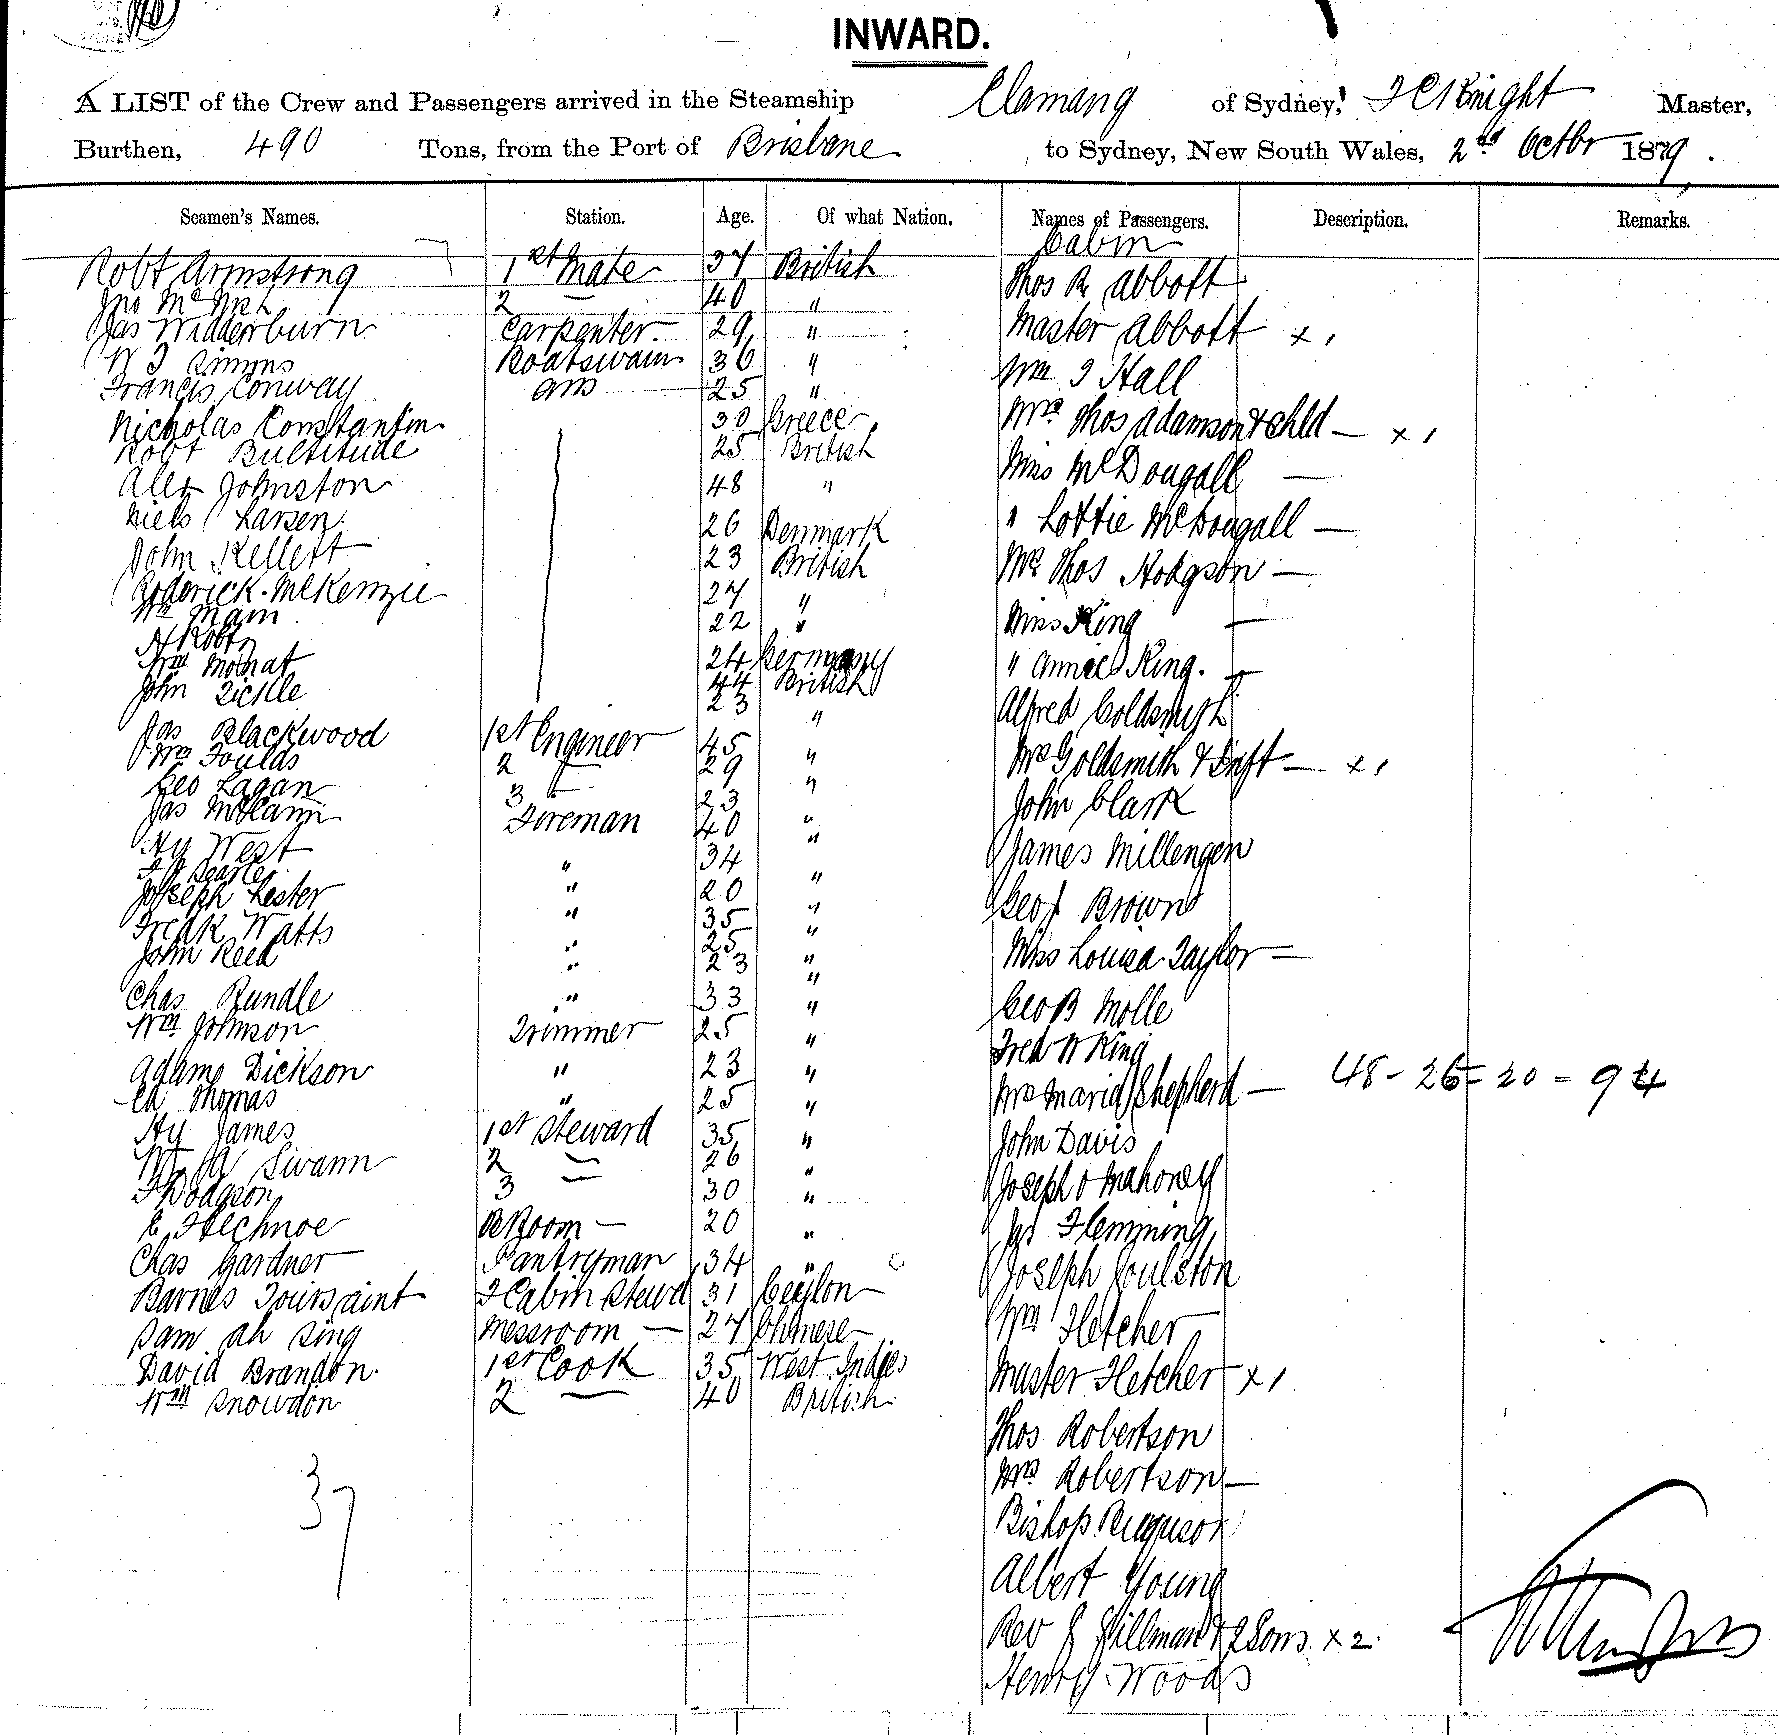 INWARD.
A LIST of the Crew and Passengers arrived in the Steamship Clamang of Sydney, Knight Master,
Burthen, 490 Tons, from the Port of Brisbane to Sydney, New South Wales, 2nd Octbr 1879.
Seamen's Names. Station. Age. Of what Nation. Names of Passengers. Description. Remarks.
Cabin
Robt Armstrong 1st Mate 37 British Thos R Abbott
Jno 2 — 40 "
Jas Widderburn Carpenter 29 " Master Abbott × 1
W J Simms Boatswain 36 " Wm J Hall
Francis Conway AB 25 "
Nicholas Constantin 30 Greece Mrs Thos Adamson & Chld — × 1
Robt Bultitude 25 British
Alex Johnston 48 " Miss McDougall —
Niels Larsen 26 Denmark " Lottie McDougall —
John Kellett 23 British Mr Thos Hodgson —
Roderick McKenzie 27 "
Wm Main 22 " Miss King —
H Robtn
Wm Moffat 24 Germany " Annie King. —
44 British
John Tickle 23 " Alfred Goldsmith
Jas Blackwood 1st Engineer 45 "
Wm Foulds 2 — 29 " Mrs Goldsmith & Inft — × 1
Geo Lagan 3 — 23 " John Clark
Jas McCann Foreman 40 "
Hy West " 34 " James Millengen
Searle " 20 "
Joseph Lester " 35 " Geo J Brown
Fredk Watts " 25 "
John Reed " 23 " Miss Louisa Taylor —
Chas Rundle " 33 " Geo B Molle
Wm Johnson Trimmer 25 " Fred W King
Adam Dickson " 23 " Mrs Maria Shepherd — 48 - 26 = 20 = 94
Ed Thomas " 25 "
Hy James 1st Steward 35 " John Davis
Swann 2 — 26 "
Hodgson 3 — 30 " Joseph O Mahoney
E B Room — 20 " Jas Flemming
Chas Gardner Pantryman 34 " Joseph Joulston
Barnes Toursaint F Cabin Stewd 31 Ceylon Wm Fletcher
Sam Ah Sing Messroom — 27 Chinese
David Brandon 1st Cook 35 West Indies Master Fletcher × 1
Wm Snowdon 2 — 40 British
Thos Robertson
Mrs Robertson —
37 Bishop
Albert Young
Rev J Hillman & 2 Sons × 2
Henry Woods